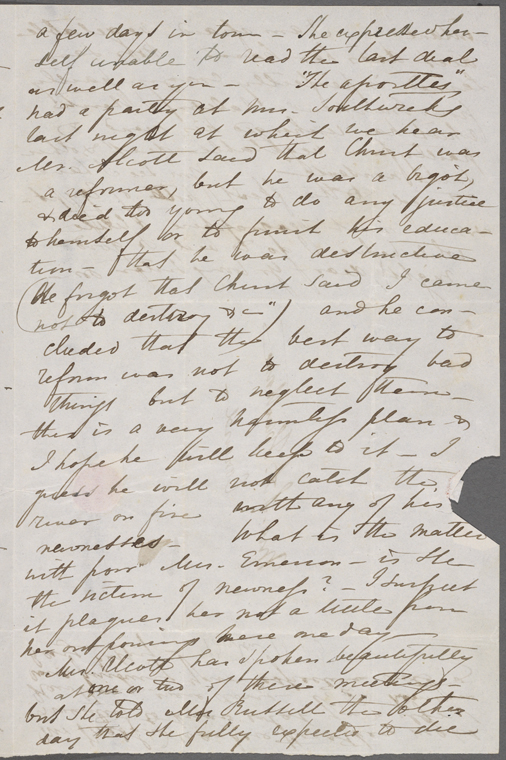 a few days in town – She expressed her-
self unable to read the last deal
as well as you – "The apostles"
had a party at Mrs. Southwicks
last night at which we hear
Mr. Alcott said that Christ was
a reformer, but he was a bigot,
& died too young to do any justice
to himself or to finish his educa-
tion – that he was destructive
(He forgot that Christ said I came
not to destroy &c") and he con-
cluded that the best way to
reform was not to destroy bad
things but to neglect them –
this is a very harmless plan &
I hope he will keep to it – I
guess he will not catch the
river on fire with any of his
newnesses – What is the matter
with poor Mrs. Emerson – is she
the victim of newness? – I suspect
it plagues her not a little from
her outpouring here one day
Mrs. Alcott has spoken beautifully
at one or two of these meetings –
but she told Mrs. Russell the other
day that she fully expected to die